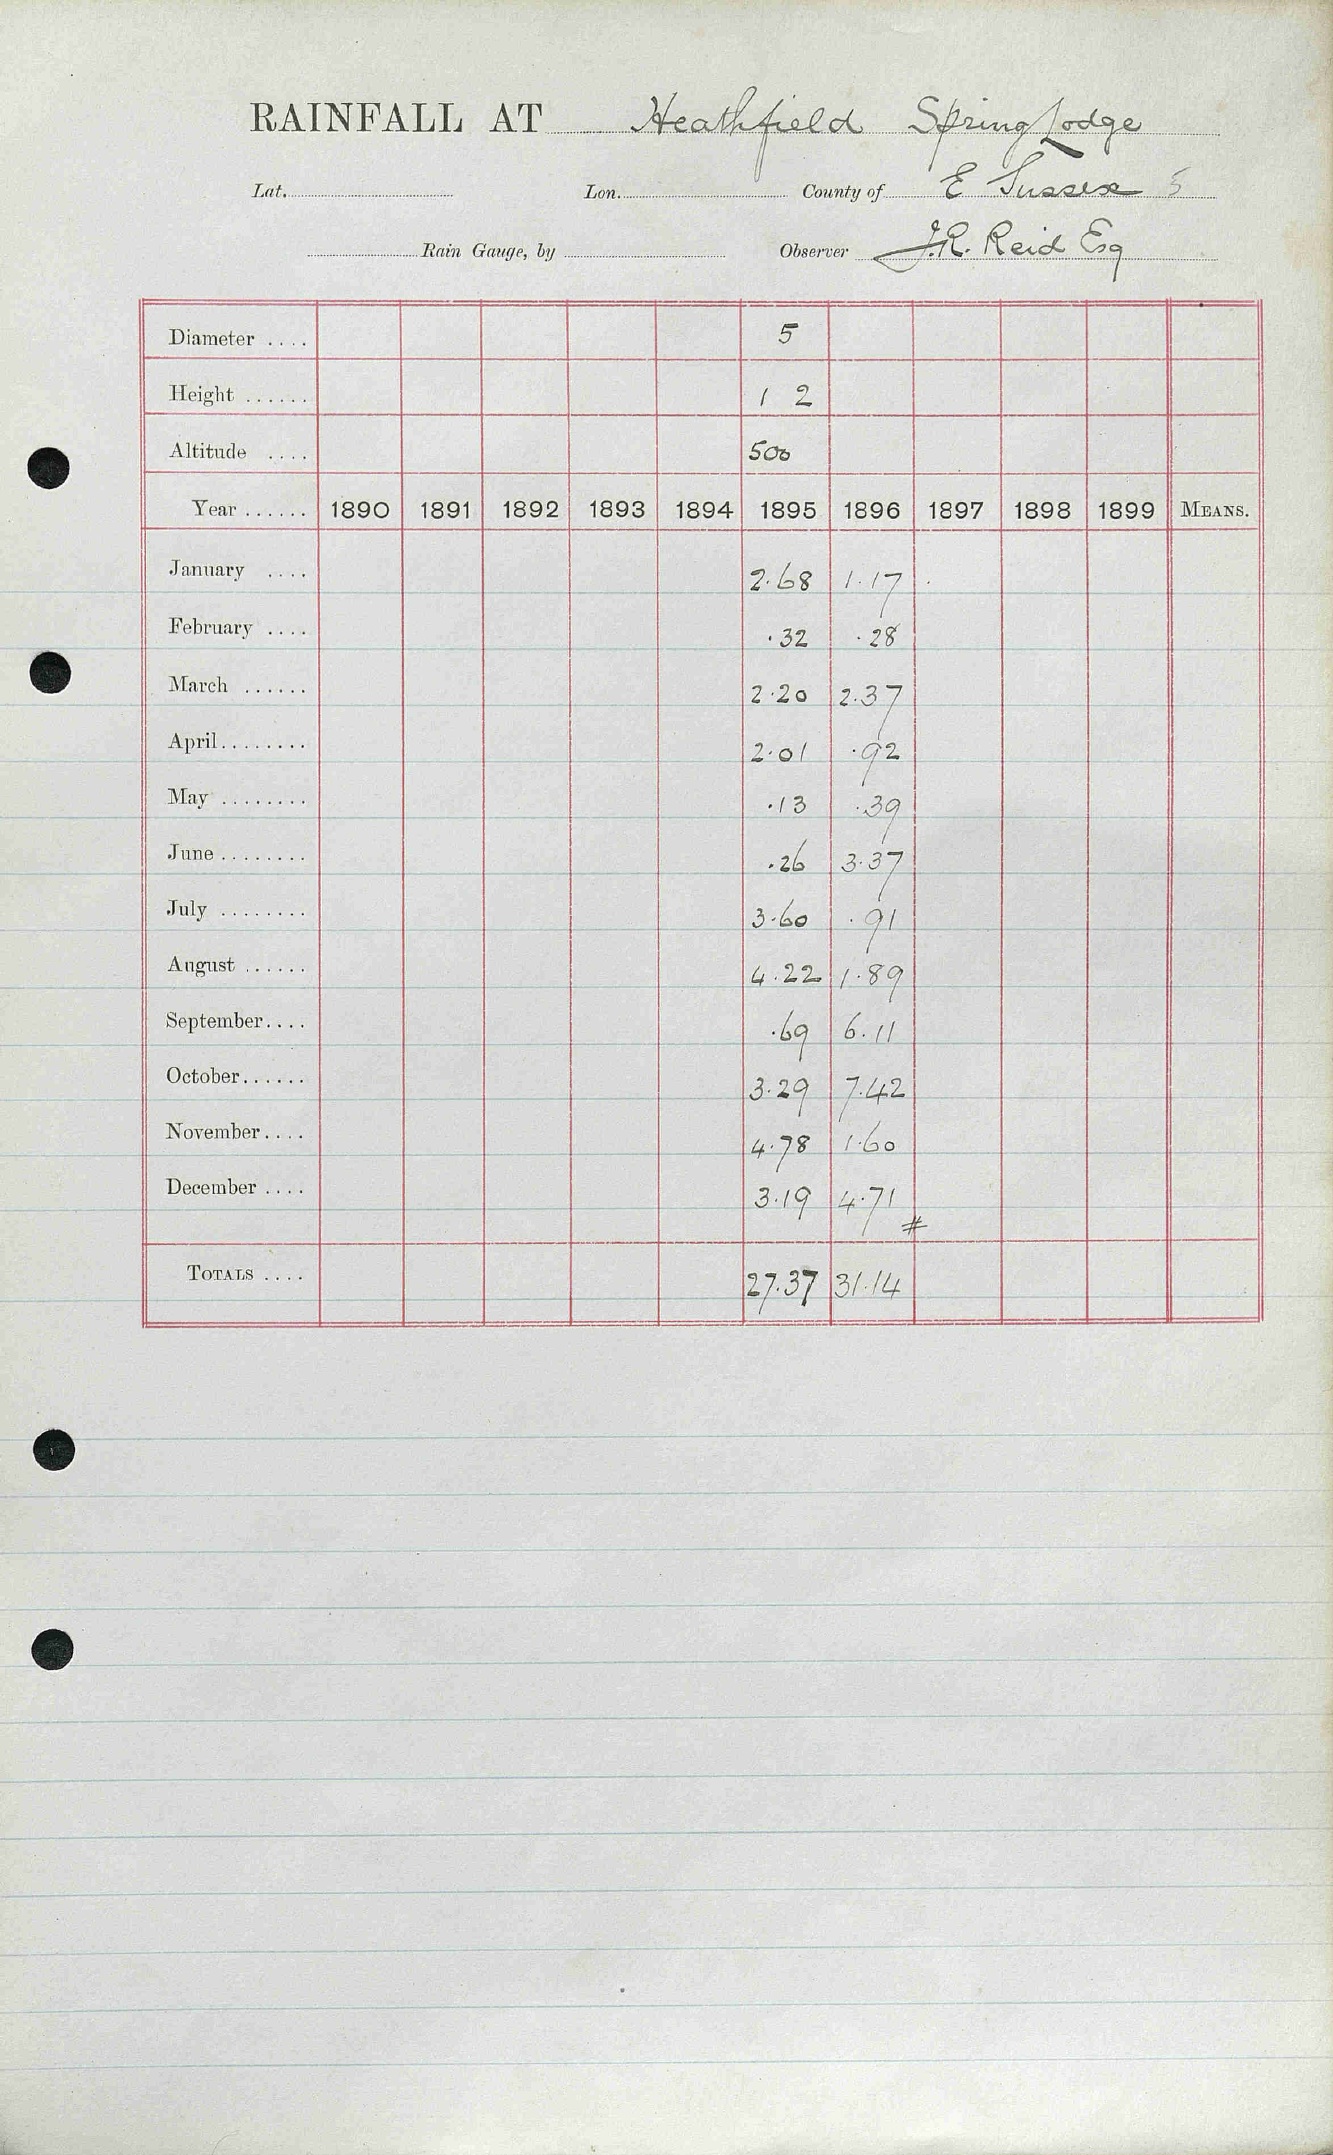 RAINFALL AT Heathfield Spring Lodge
Lat. Lon. County of E Sussex 5
Rain Gauge, by Observer J.R. Reid Esq
Diameter .... 5
Height ...... 1 2
Altitude .... 500
Year ...... 1890 1891 1892 1893 1894 1895 1896 1897 1898 1899 MEANS.
January .... 2.68 1.17
February .... .32 .28
March ...... 2.20 2.37
April ........ 2.01 .92
May ........ .13 .39
June ........ .26 3.37
July ........ 3.60 .91
August ...... 4.22 1.89
September .... .69 6.11
October ...... 3.29 7.42
November .... 4.78 1.60
December .... 3.19 4.71
#
TOTALS .... 27.37 31.14